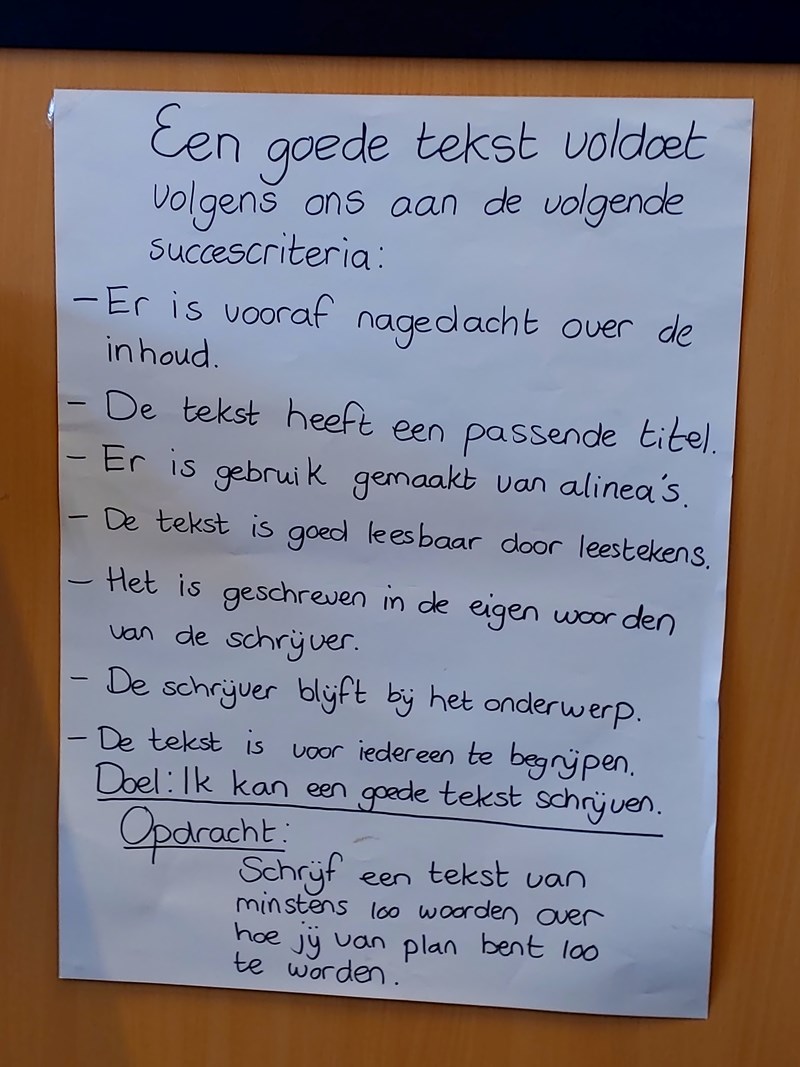 Een goede tekst voldoet
volgens ons aan de volgende
succescriteria:
- Er is vooraf nagedacht over de
inhoud.
- De tekst heeft een passende titel.
- Er is gebruik gemaakt van alinea's.
- De tekst is goed leesbaar door leestekens.
- Het is geschreven in de eigen woorden
van de schrijver.
- De schrijver blijft bij het onderwerp.
- De tekst is voor iedereen te begrijpen.
Doel: Ik kan een goede tekst schrijven.
Opdracht:
Schrijf een tekst van
minstens 100 woorden over
hoe jij van plan bent 100
te worden.